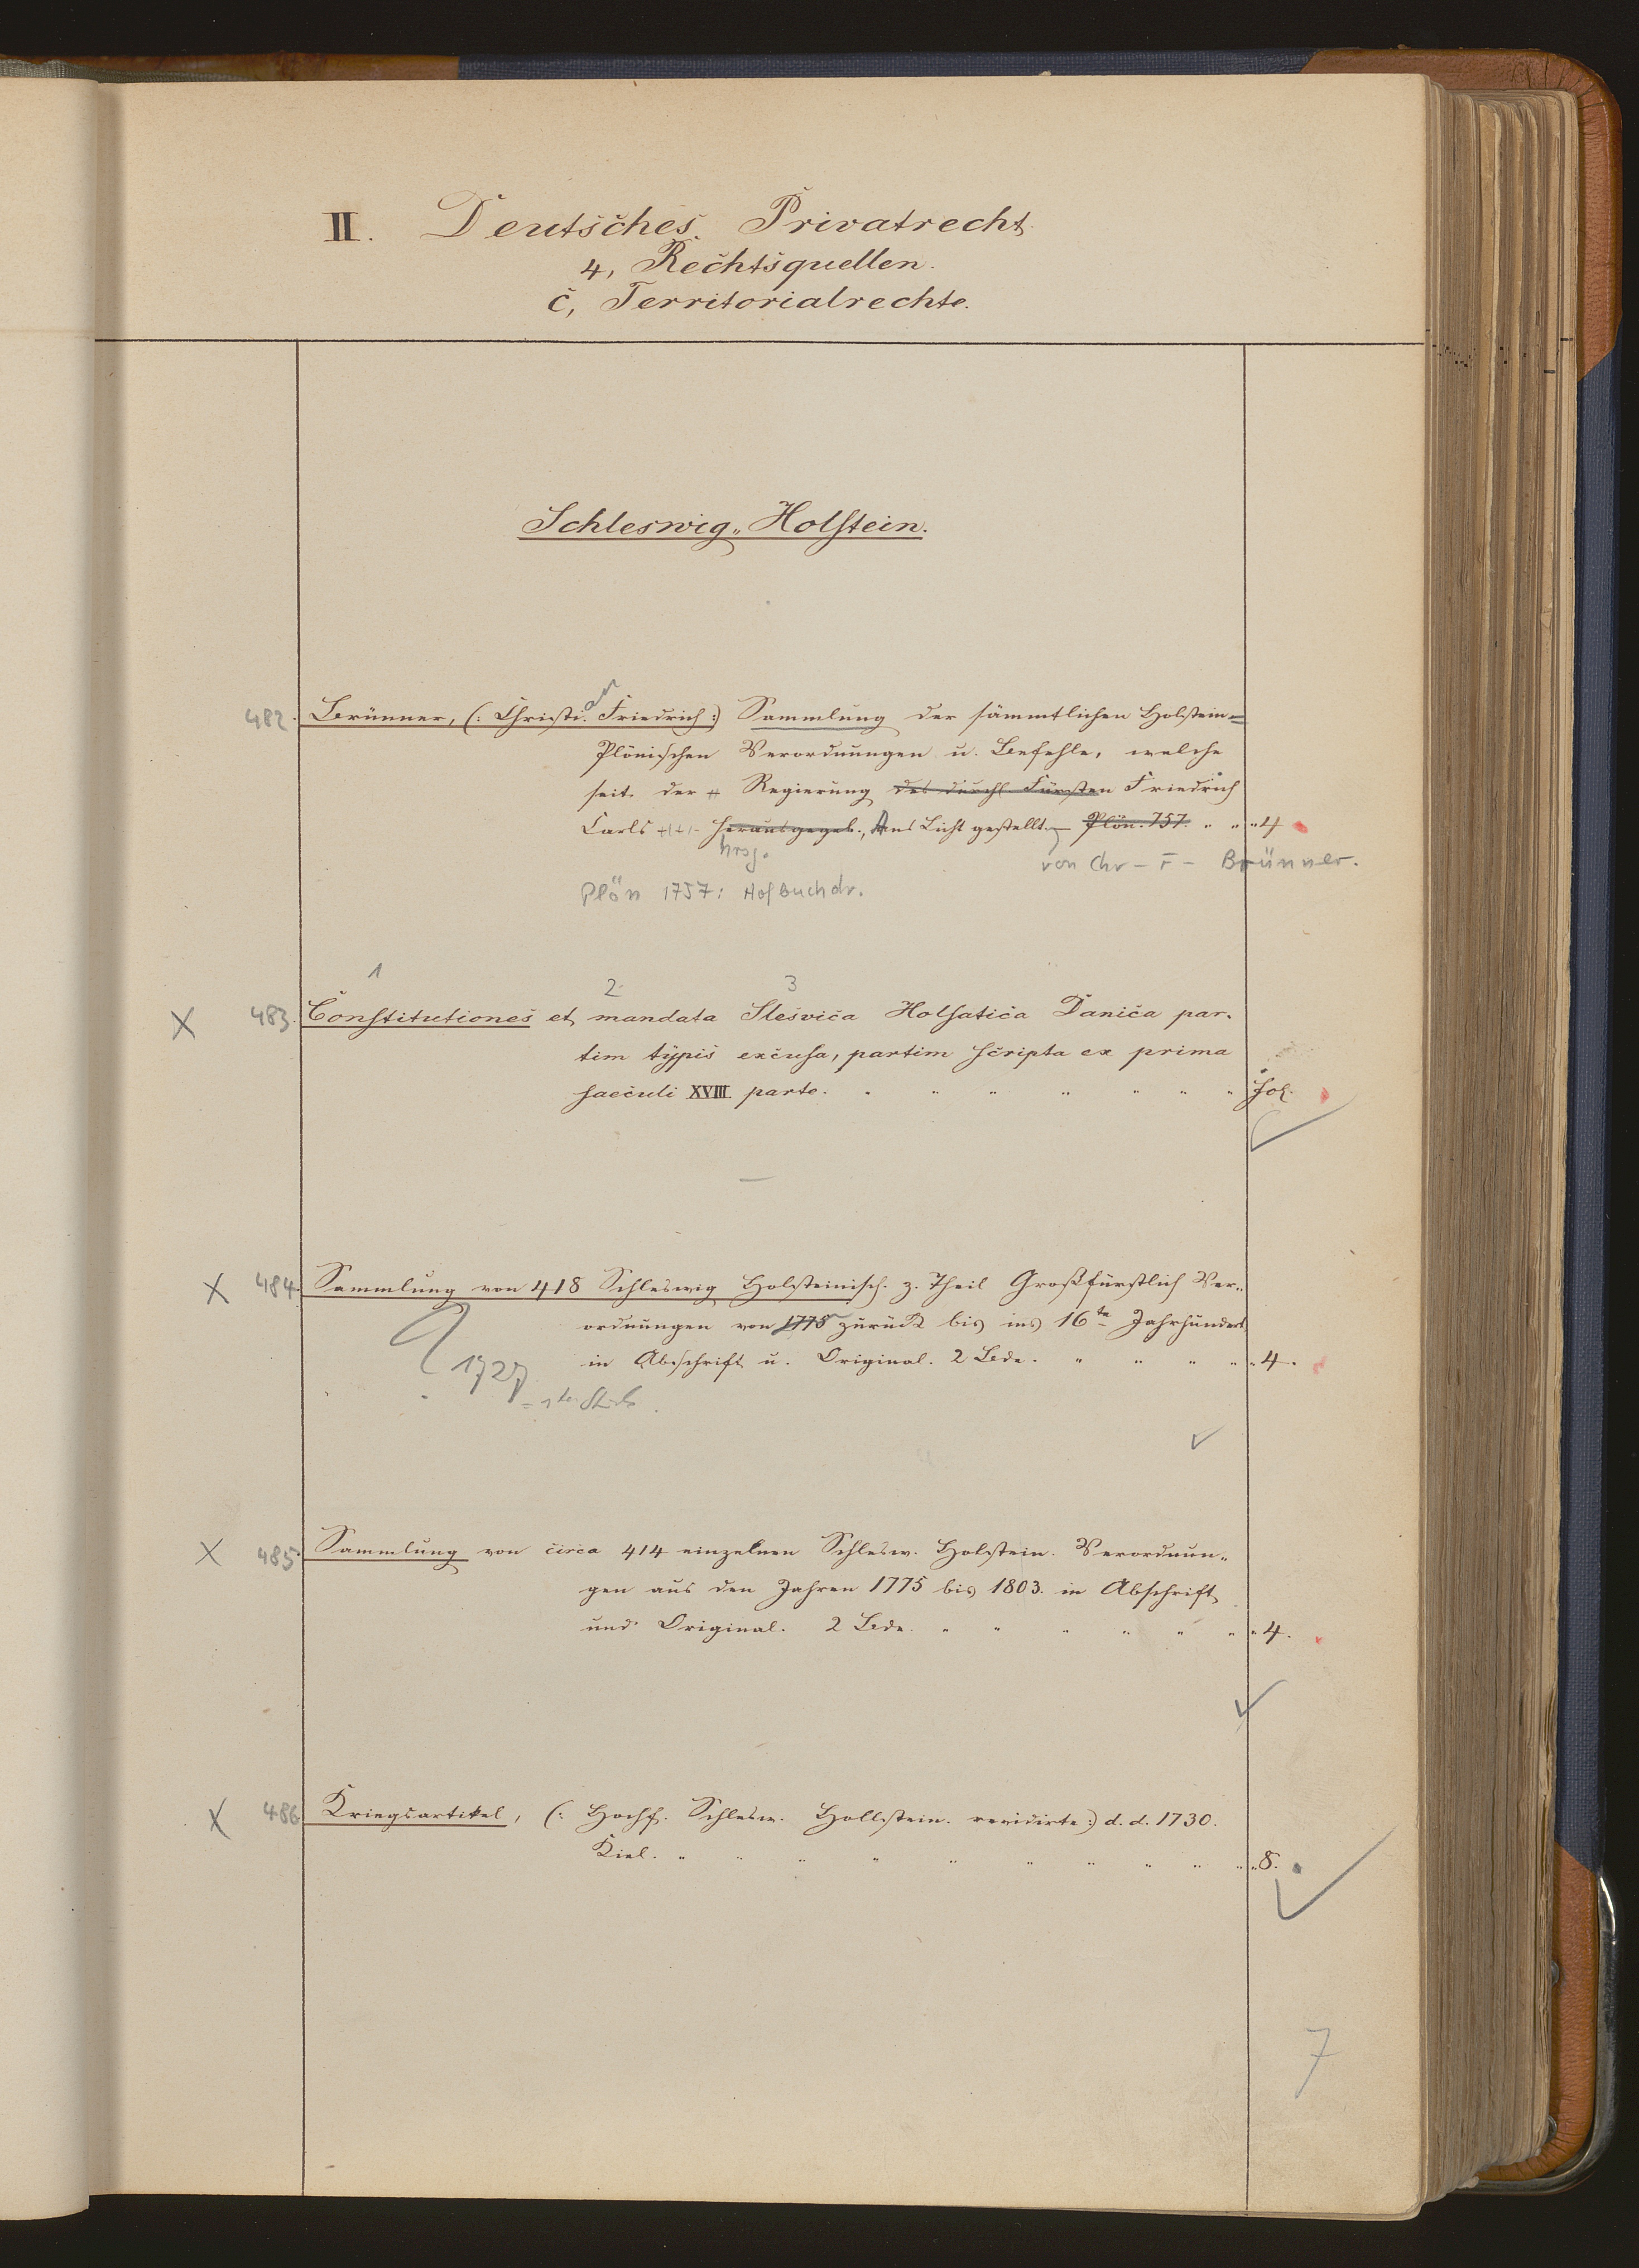 II. Deutsches Privatrecht.
4, Rechtsquellen.
c, Territorialrechte.
Schleswig-Holstein.
an
482. Brünner, (: Christi. Friedrich :) Sammlung der sämmtlichen Holstein=
Plönischen Verordnungen u. Befehle, welche
seit der # Regierung des durchl. Fürsten Friedrich
Carls herausgegeb., Ans Licht gestellt. Plön. 757. " " " 4
hrsg. von Chr - F - Brünner.
Plön 1757: Hofbuchdr.
1 2. 3
X 483. Constitutiones et mandata Slesvica Holsatica Danica par-
tim typis excusa, partim scripta ex prima
saeculi XVIII. parte. " " " " " " " fol.
X 484. Sammlung von 418 Schleswig Holsteinisch. z. Theil Großfürstlich Ver-
ordnungen von 1775 zurück bis ins 16te Jahrhundert
in Abschrift u. Original. 2 Bde. " " " " " 4.
1727
X 485. Sammlung von circa 414 einzelnen Schlesw. Holstein. Verordnun-
gen aus den Jahren 1775 bis 1803. in Abschrift
und Original. 2 Bde. " " " " " " " 4.
X 486 Kriegsartikel, (: Hochf. Schlesw. Hollstein. revidirte :) d. d. 1730.
Kiel. " " " " " " " " " " " 8.
7